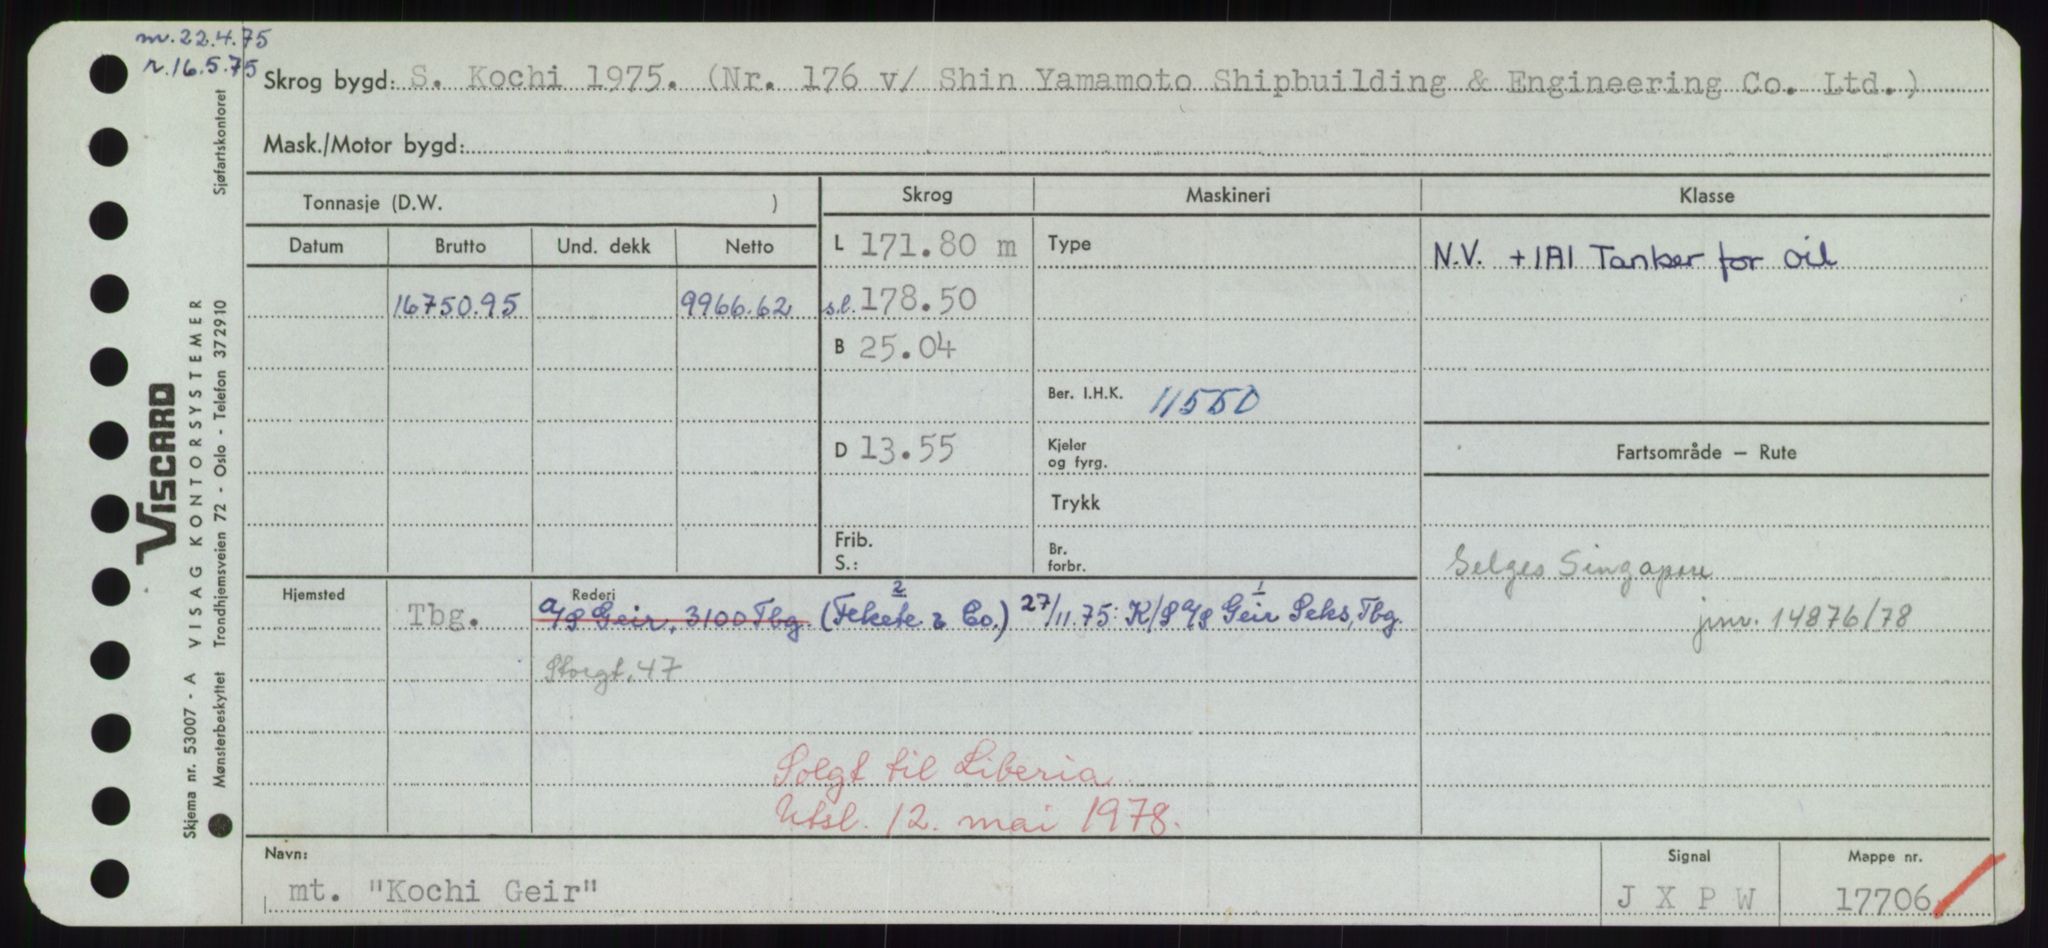 m. 22.4.75
r. 16.5.75
Skrog bygd: S. Kochi 1975. (Nr. 176 v/ Shin Yamamoto Shipbuilding & Engineering Co. Ltd.)
Mask./Motor bygd:
Tonnasje (D.W. )
Skrog
Maskineri
Klasse
Datum Brutto Und. dekk Netto
L 171.80 m
Type
N.V. +1A1 Tanker for oil
16750.95 9966.62
s.l. 178.50
B 25.04
Ber. I.H.K. 11550
D 13.55
Kjeler
og fyrg.
Fartsområde – Rute
Trykk
Frib.
S.:
Br.
forbr.
Selges Singapore
jnr. 14876/78
Hjemsted
Rederi
Tbg. A/S Geir, 3100 Tbg. (Fekete & Co.) 2 27/11.75: K/S A/S Geir Seks, Tbg. 1
Storgt. 47
Solgt til Liberia
Utsl. 12. mai 1978.
Navn: mt. "Kochi Geir"
Signal J X P W
Mappe nr. 17706
VISCARD
Skjema nr. 53007 - A VISAG KONTORSYSTEMER
Mønsterbeskyttet Trondhjemsveien 72 - Oslo - Telefon 372910 Sjøfartskontoret